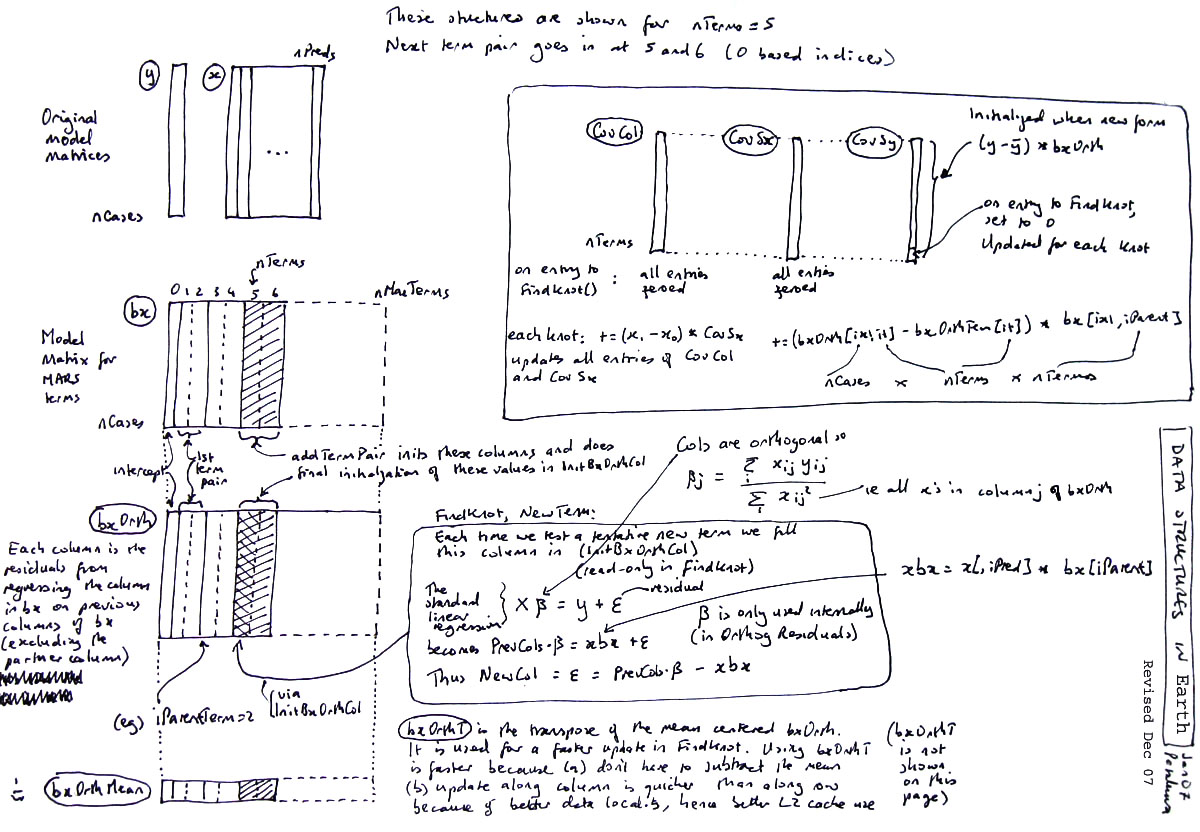 These structures are shown for nTerms = 5
Next term pair goes in at 5 and 6 (0 based indices)
nPreds
y
x
Original
model
matrices
...
nCases
CovCol
CovSx
CovSy
Initialized when new form
(y-ȳ) * bxOrth
on entry to FindKnot,
set to 0
Updated for each knot
nTerms
on entry to
FindKnot()
:
all entries
zeroed
all entries
zeroed
each knot: += (x₁ - x₀) * CovSx
updates all entries of CovCol
and CovSx
+= (bxOrth[ix1,it] - bxOrthMean[it]) * bx[ix1, iParent]
nCases x nTerms x nTerms
nTerms
0 1 2 3 4 5 6
nMaxTerms
bx
Model
Matrix for
MARS
terms
nCases
intercept
1st
term
pair
x
addTermPair inits these columns and does
final initialization of these values in InitBxOrthCol
Cols are orthogonal so
βj = Σi xij yij / Σi xij²
ie all x's in column j of bxOrth
bxOrth
Each column is the
residuals from
regressing the column
in bx on previous
columns of bx
(excluding the
partner column)
FindKnot, NewTerm:
Each time we test a tentative new term we fill
this column in (InitBxOrthCol)
(read-only in FindKnot)
The
standard
linear
regression
} X β = y + ε
residual
becomes PrevCols·β = xbx + ε
β is only used internally
(in OrthogResiduals)
Thus NewCol = ε = PrevCols·β - xbx
xbx = x[,iPred] * bx[iParent]
(eg) iParentTerm=2
via
InitBxOrthCol
bxOrthMean
bxOrthT is the transpose of the mean centered bxOrth.
It is used for a faster update in FindKnot. Using bxOrthT
is faster because (a) don't have to subtract the mean
(b) update along column is quicker than along row
because of better data locality, hence better L2 cache use
(bxOrthT
is not
shown
on this
page)
DATA STRUCTURES IN Earth
Jan 07
Revised Dec 07